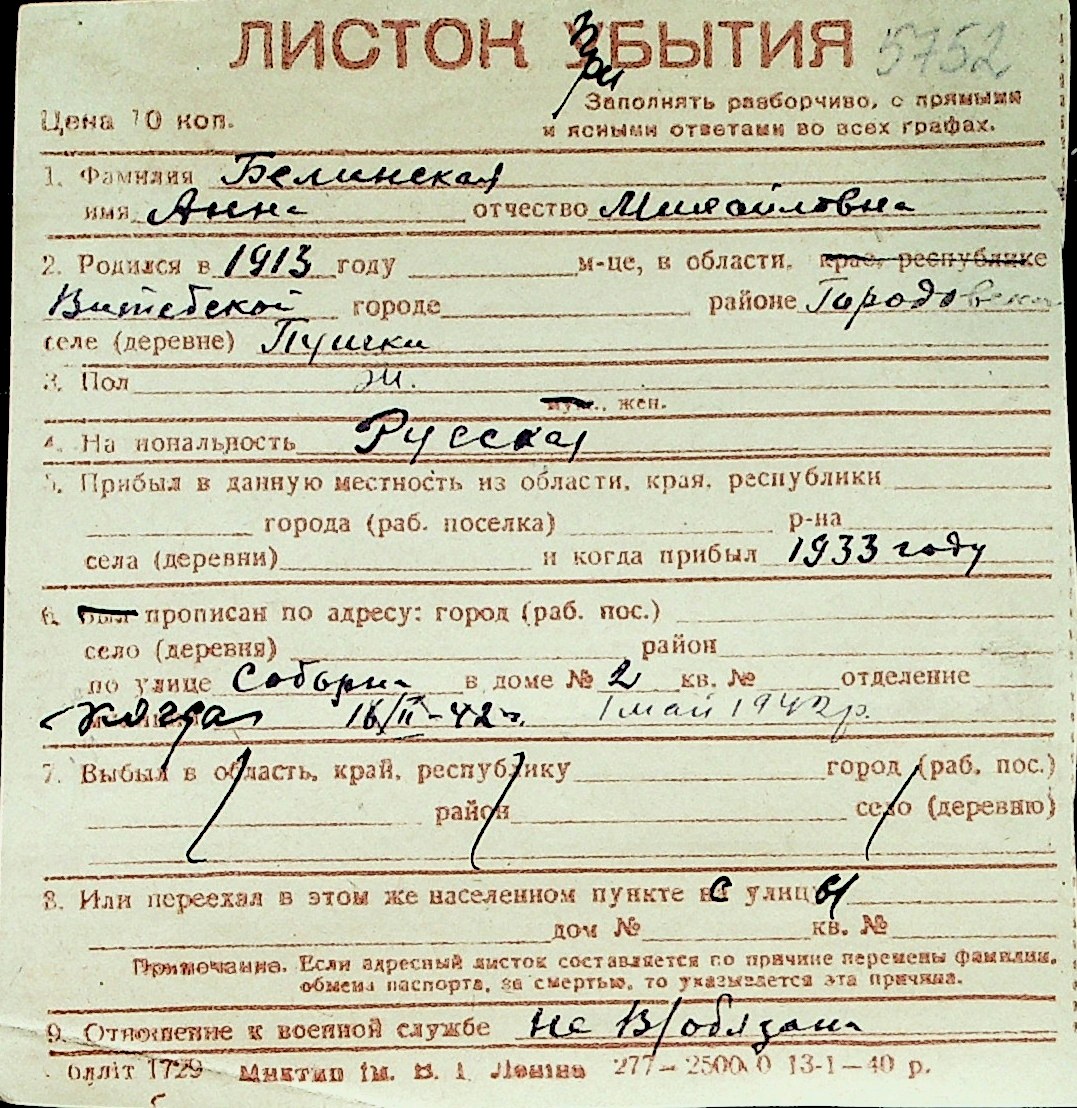 ЛИСТОК УБЫТИЯ 5752
При
Цена 10 коп.
Заполнять разборчиво, с прямыми
и ясными ответами во всех графах.
1. Фамилия Белинская
имя Анна отчество Михайловна
2. Родился в 1913 году м-це, в области, крае, республике
Витебской городе районе Городовском
селе (деревне) Пушки
3. Пол ж.
муж., жен.
4. Национальность Русская
5. Прибыл в данную местность из области, края, республики
города (раб. поселка) р-на
села (деревни) и когда прибыл 1933 году
6. Был прописан по адресу: город (раб. пос.)
село (деревня) район
по улице Соборна в доме № 2 кв. № отделение
когда 16/II-42 г. 1 май 1942 р.
7. Выбыл в область, край, республику город (раб. пос.)
район село (деревню)
8. Или переехал в этом же населенном пункте с улицы
дом № кв. №
Примечание. Если адресный листок составляется по причине перемены фамилии,
обмена паспорта, за смертью, то указывается эта причина.
9. Отношение к военной службе Не в/обязана
олліт 1729 Миктип ім. В. І Леніна 277— 2500.0 13-1—40 р.